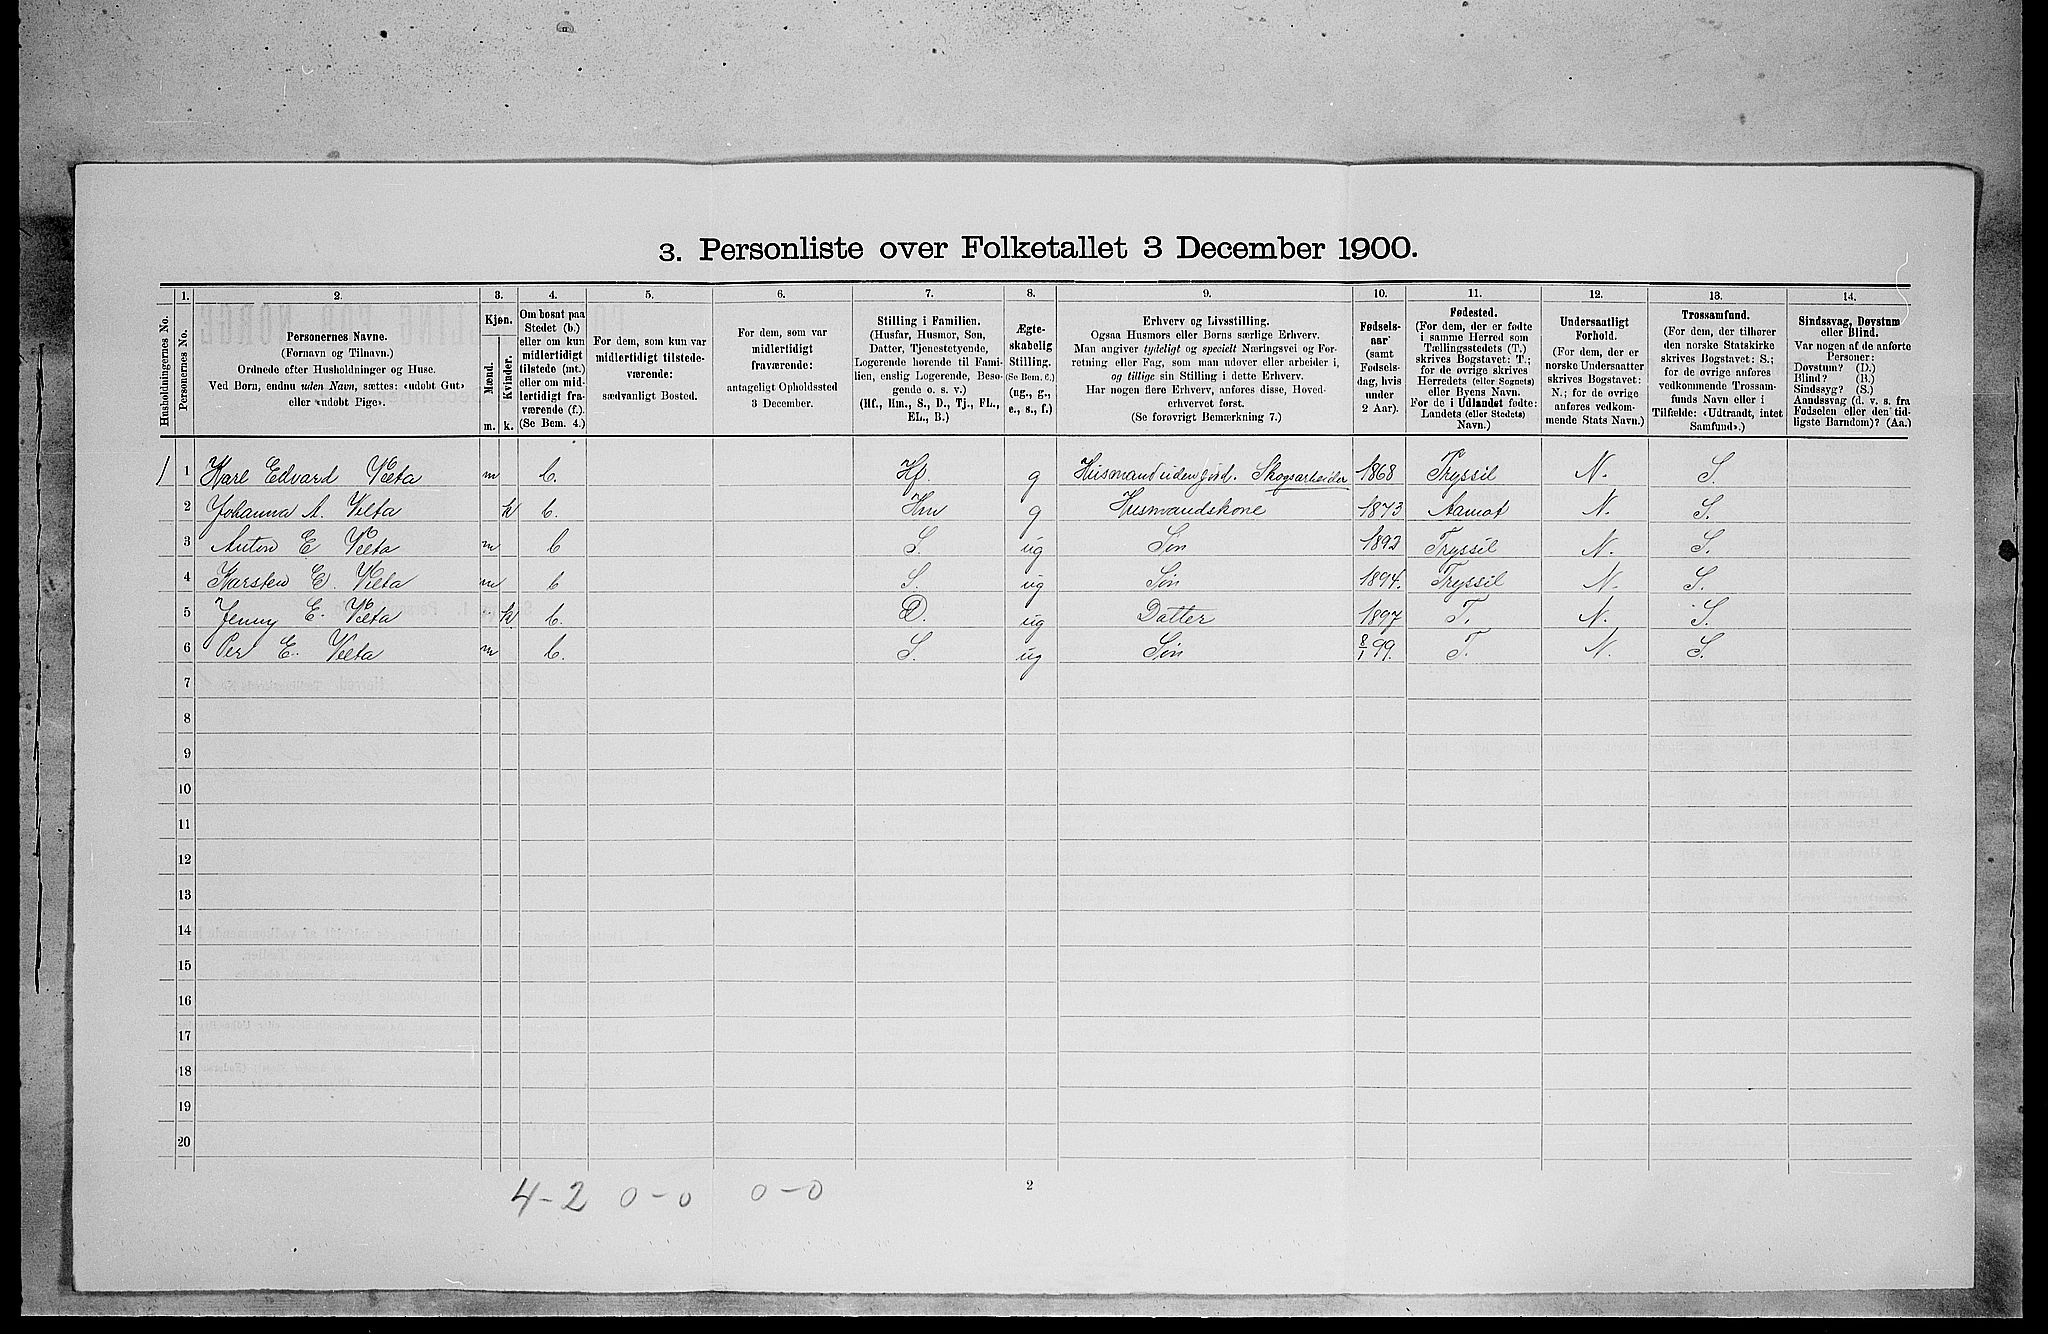 3. Personliste over Folketallet 3 December 1900.
1. 2. 3. 4. 5. 6. 7. 8. 9. 10. 11. 12. 13. 14.
Husholdningernes No.
Personernes No.
Personernes Navne.
(Fornavn og Tilnavn.)
Ordnede efter Husholdninger og Huse.
Ved Børn, endnu uden Navn, sættes: «udøbt Gut»
eller «udøbt Pige».
Kjøn.
Mænd.
Kvinder.
m. k.
Om bosat paa
Stedet (b.)
eller om kun
midlertidigt
tilstede (mt.)
eller om mid-
lertidigt fra-
værende (f.)
(Se Bem. 4.)
For dem, som kun var
midlertidigt tilstede-
værende:
sædvanligt Bosted.
For dem, som var
midlertidigt
fraværende:
antageligt Opholdssted
3 December.
Stilling i Familien.
(Husfar, Husmor, Søn,
Datter, Tjenestetyende,
Logerende hørende til Fami-
lien, enslig Logerende, Besø-
gende o. s. v.)
(Hf., Hm., S., D., Tj., FL.,
EL., B.)
Ægte-
skabelig
Stilling.
(Se Bem. 6.)
(ug., g.,
e., s., f.)
Erhverv og Livsstilling.
Ogsaa Husmors eller Børns særlige Erhverv.
Man angiver tydeligt og specielt Næringsvei og For-
retning eller Fag, som man udøver eller arbeider i,
og tillige sin Stilling i dette Erhverv.
Har nogen flere Erhverv, anføres disse, Hoved-
erhvervet først.
(Se forøvrigt Bemærkning 7.)
Fødsels-
aar
(samt
Fødsels-
dag, hvis
under
2 Aar).
Fødested.
(For dem, der er fødte
i samme Herred som
Tællingsstedets (T.)
skrives Bogstavet: T.;
for de øvrige skrives
Herredets (eller Sognets)
eller Byens Navn.
For de i Udlandet fødte:
Landets (eller Stedets)
Navn.)
Undersaatligt
Forhold.
(For dem, der er
norske Undersaatter
skrives Bogstavet:
N.; for de øvrige
anføres vedkom-
mende Stats Navn.)
Trossamfund.
(For dem, der tilhører
den norske Statskirke
skrives Bogstavet: S.;
for de øvrige anføres
vedkommende Trossam-
funds Navn eller i
Tilfælde: «Udtraadt, intet
Samfund».)
Sindssvag, Døvstum
eller Blind.
Var nogen af de anførte
Personer:
Døvstum? (D.)
Blind? (B.)
Sindssyg? (S.)
Aandssvag (d. v. s. fra
Fødselen eller den tid-
ligste Barndom)? (Aa.)
1 Karl Edvard Velta m b. Hf. g Husmand uden jord. Skogsarbeider 1868 Tryssil N. S.
2 Johanna A. Velta k b. Hm g Husmandskone 1873 Aamot N. S.
3 Anton E Velta m b S. ug Søn 1892 Tryssil N. S.
4 Karsten E. Velta m b S. ug Søn 1894. Tryssil N. S.
5 Jenny E. Velta k b. D. ug Datter 1897 T. N. S.
6 Per E. Velta m b. S. ug Søn 8/1 99. T. N. S.
7
8
9
10
11
12
13
14
15
16
17
18
19
20
4-2 0-0 0-0
2